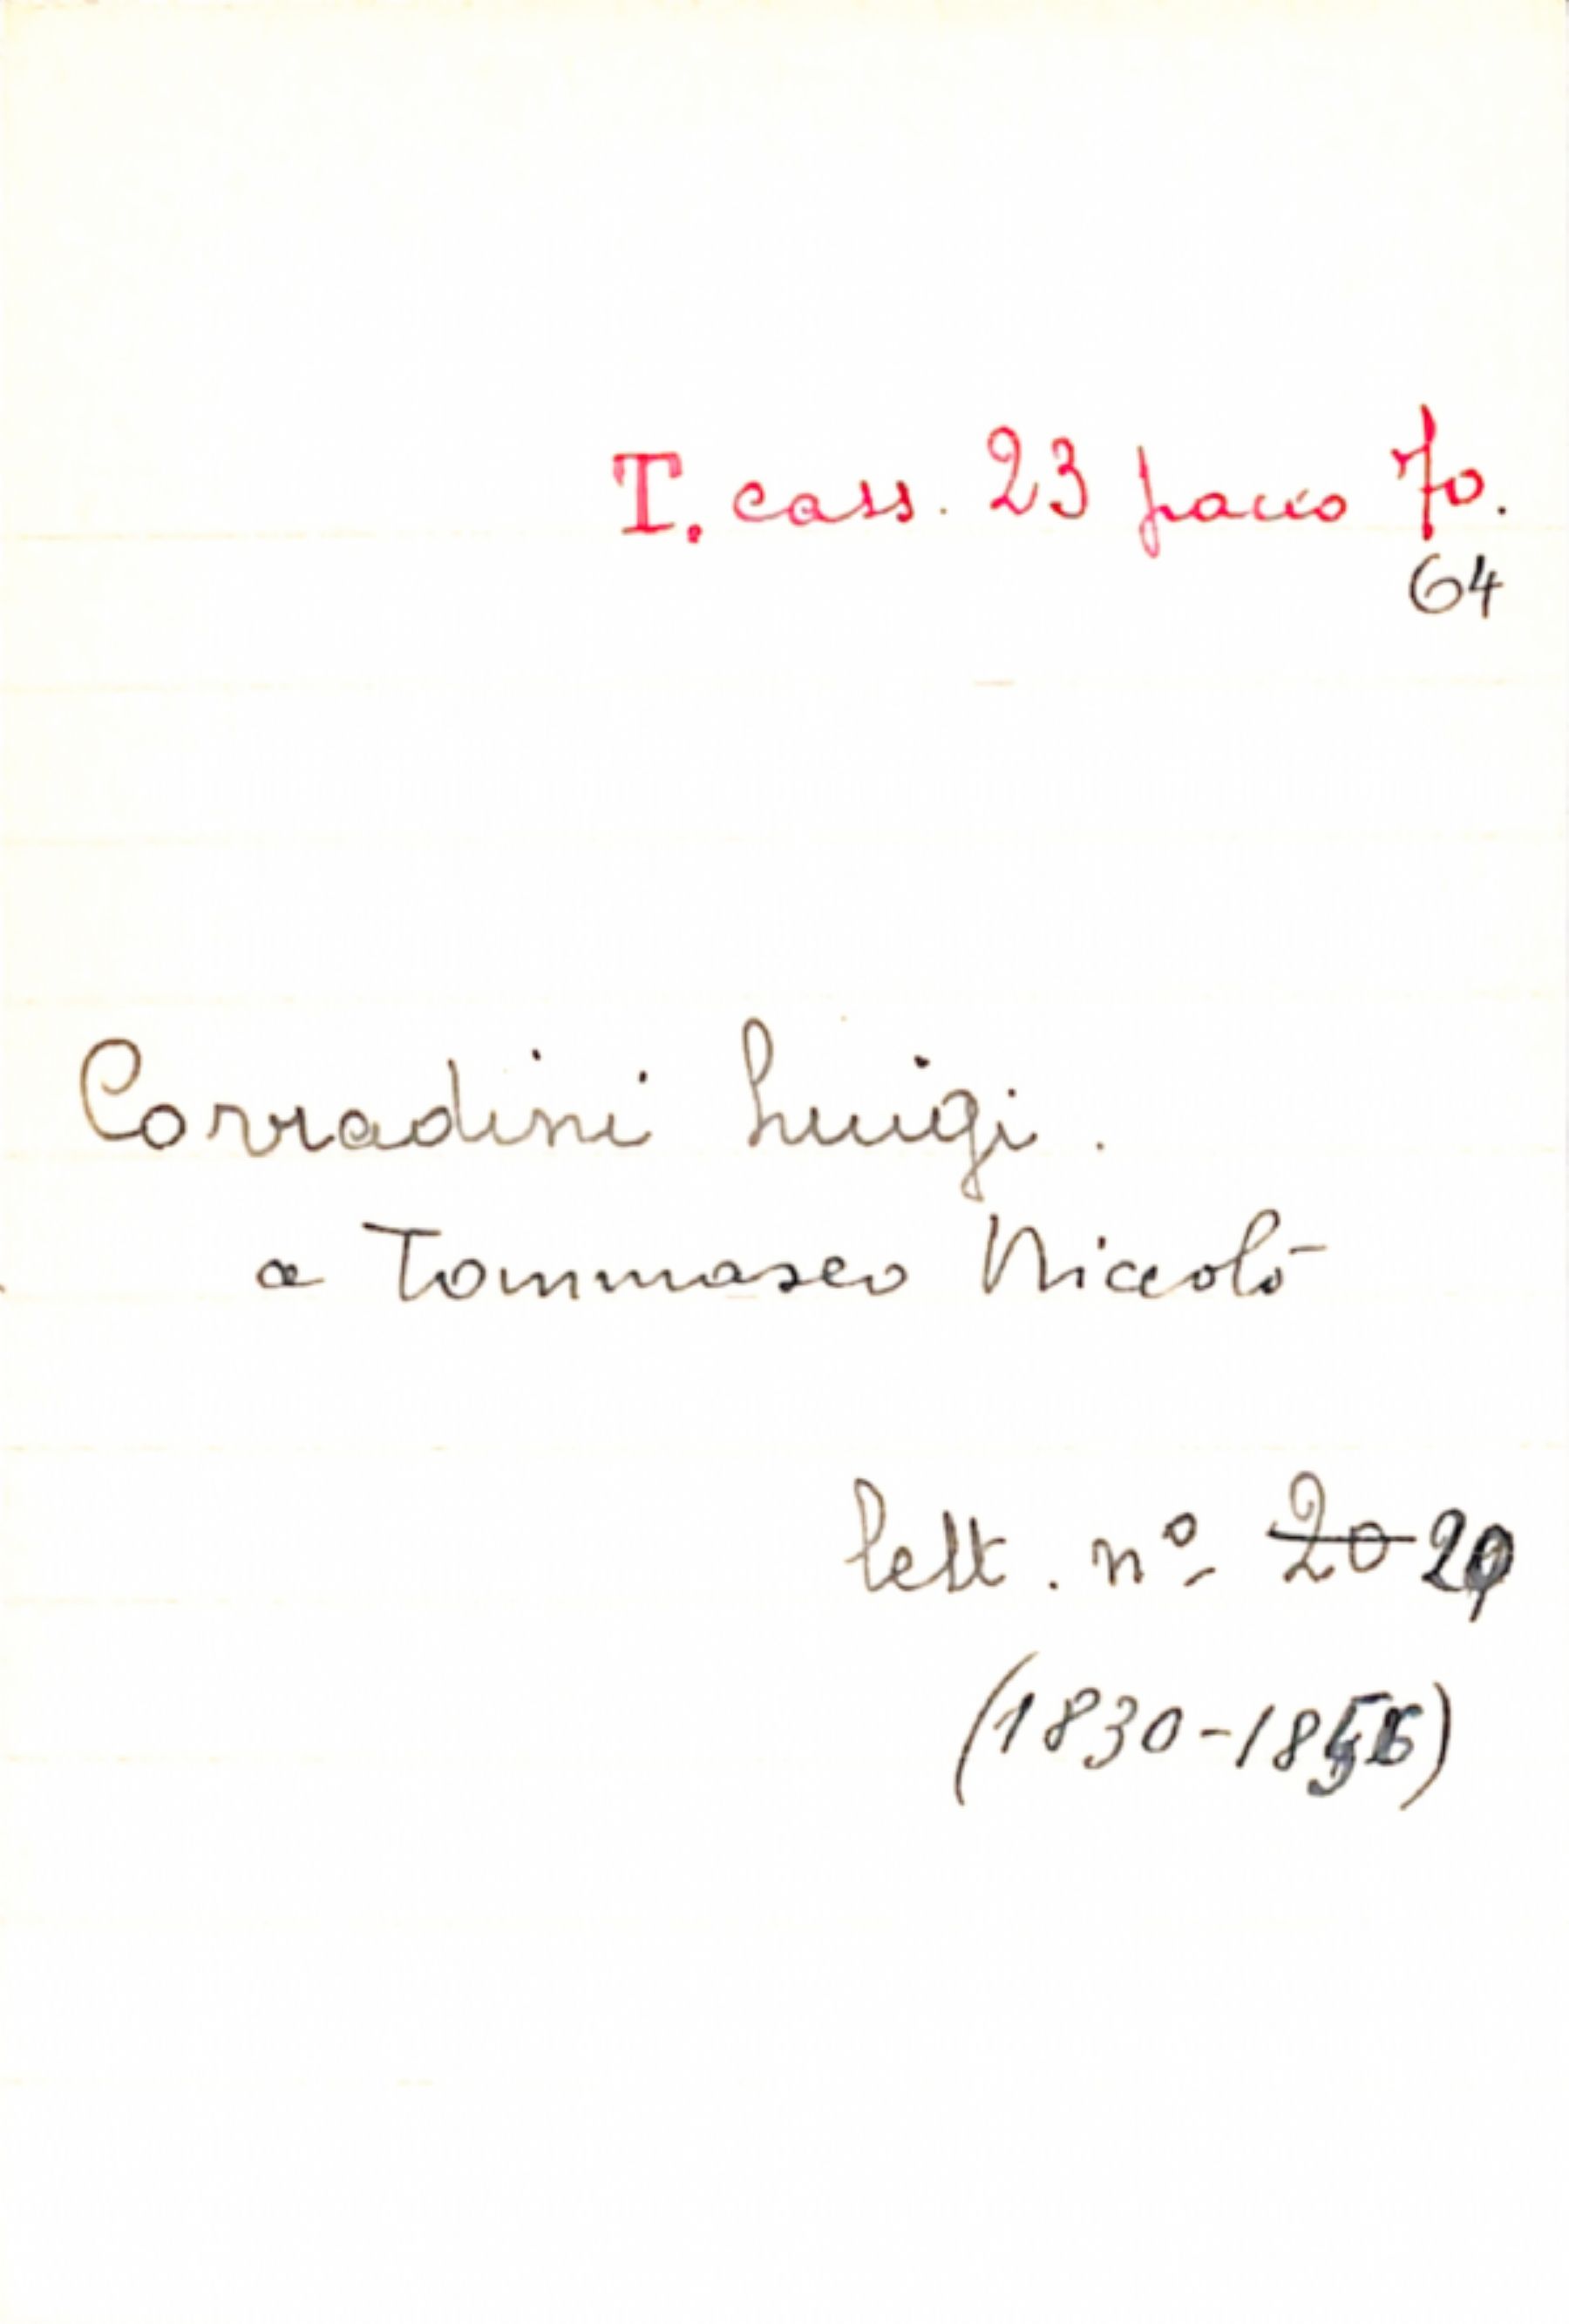 T. cass. 23 pacco 70.
64
Corradini Luigi.
a Tommaseo Niccolò
lett. nº 20
(1830-18